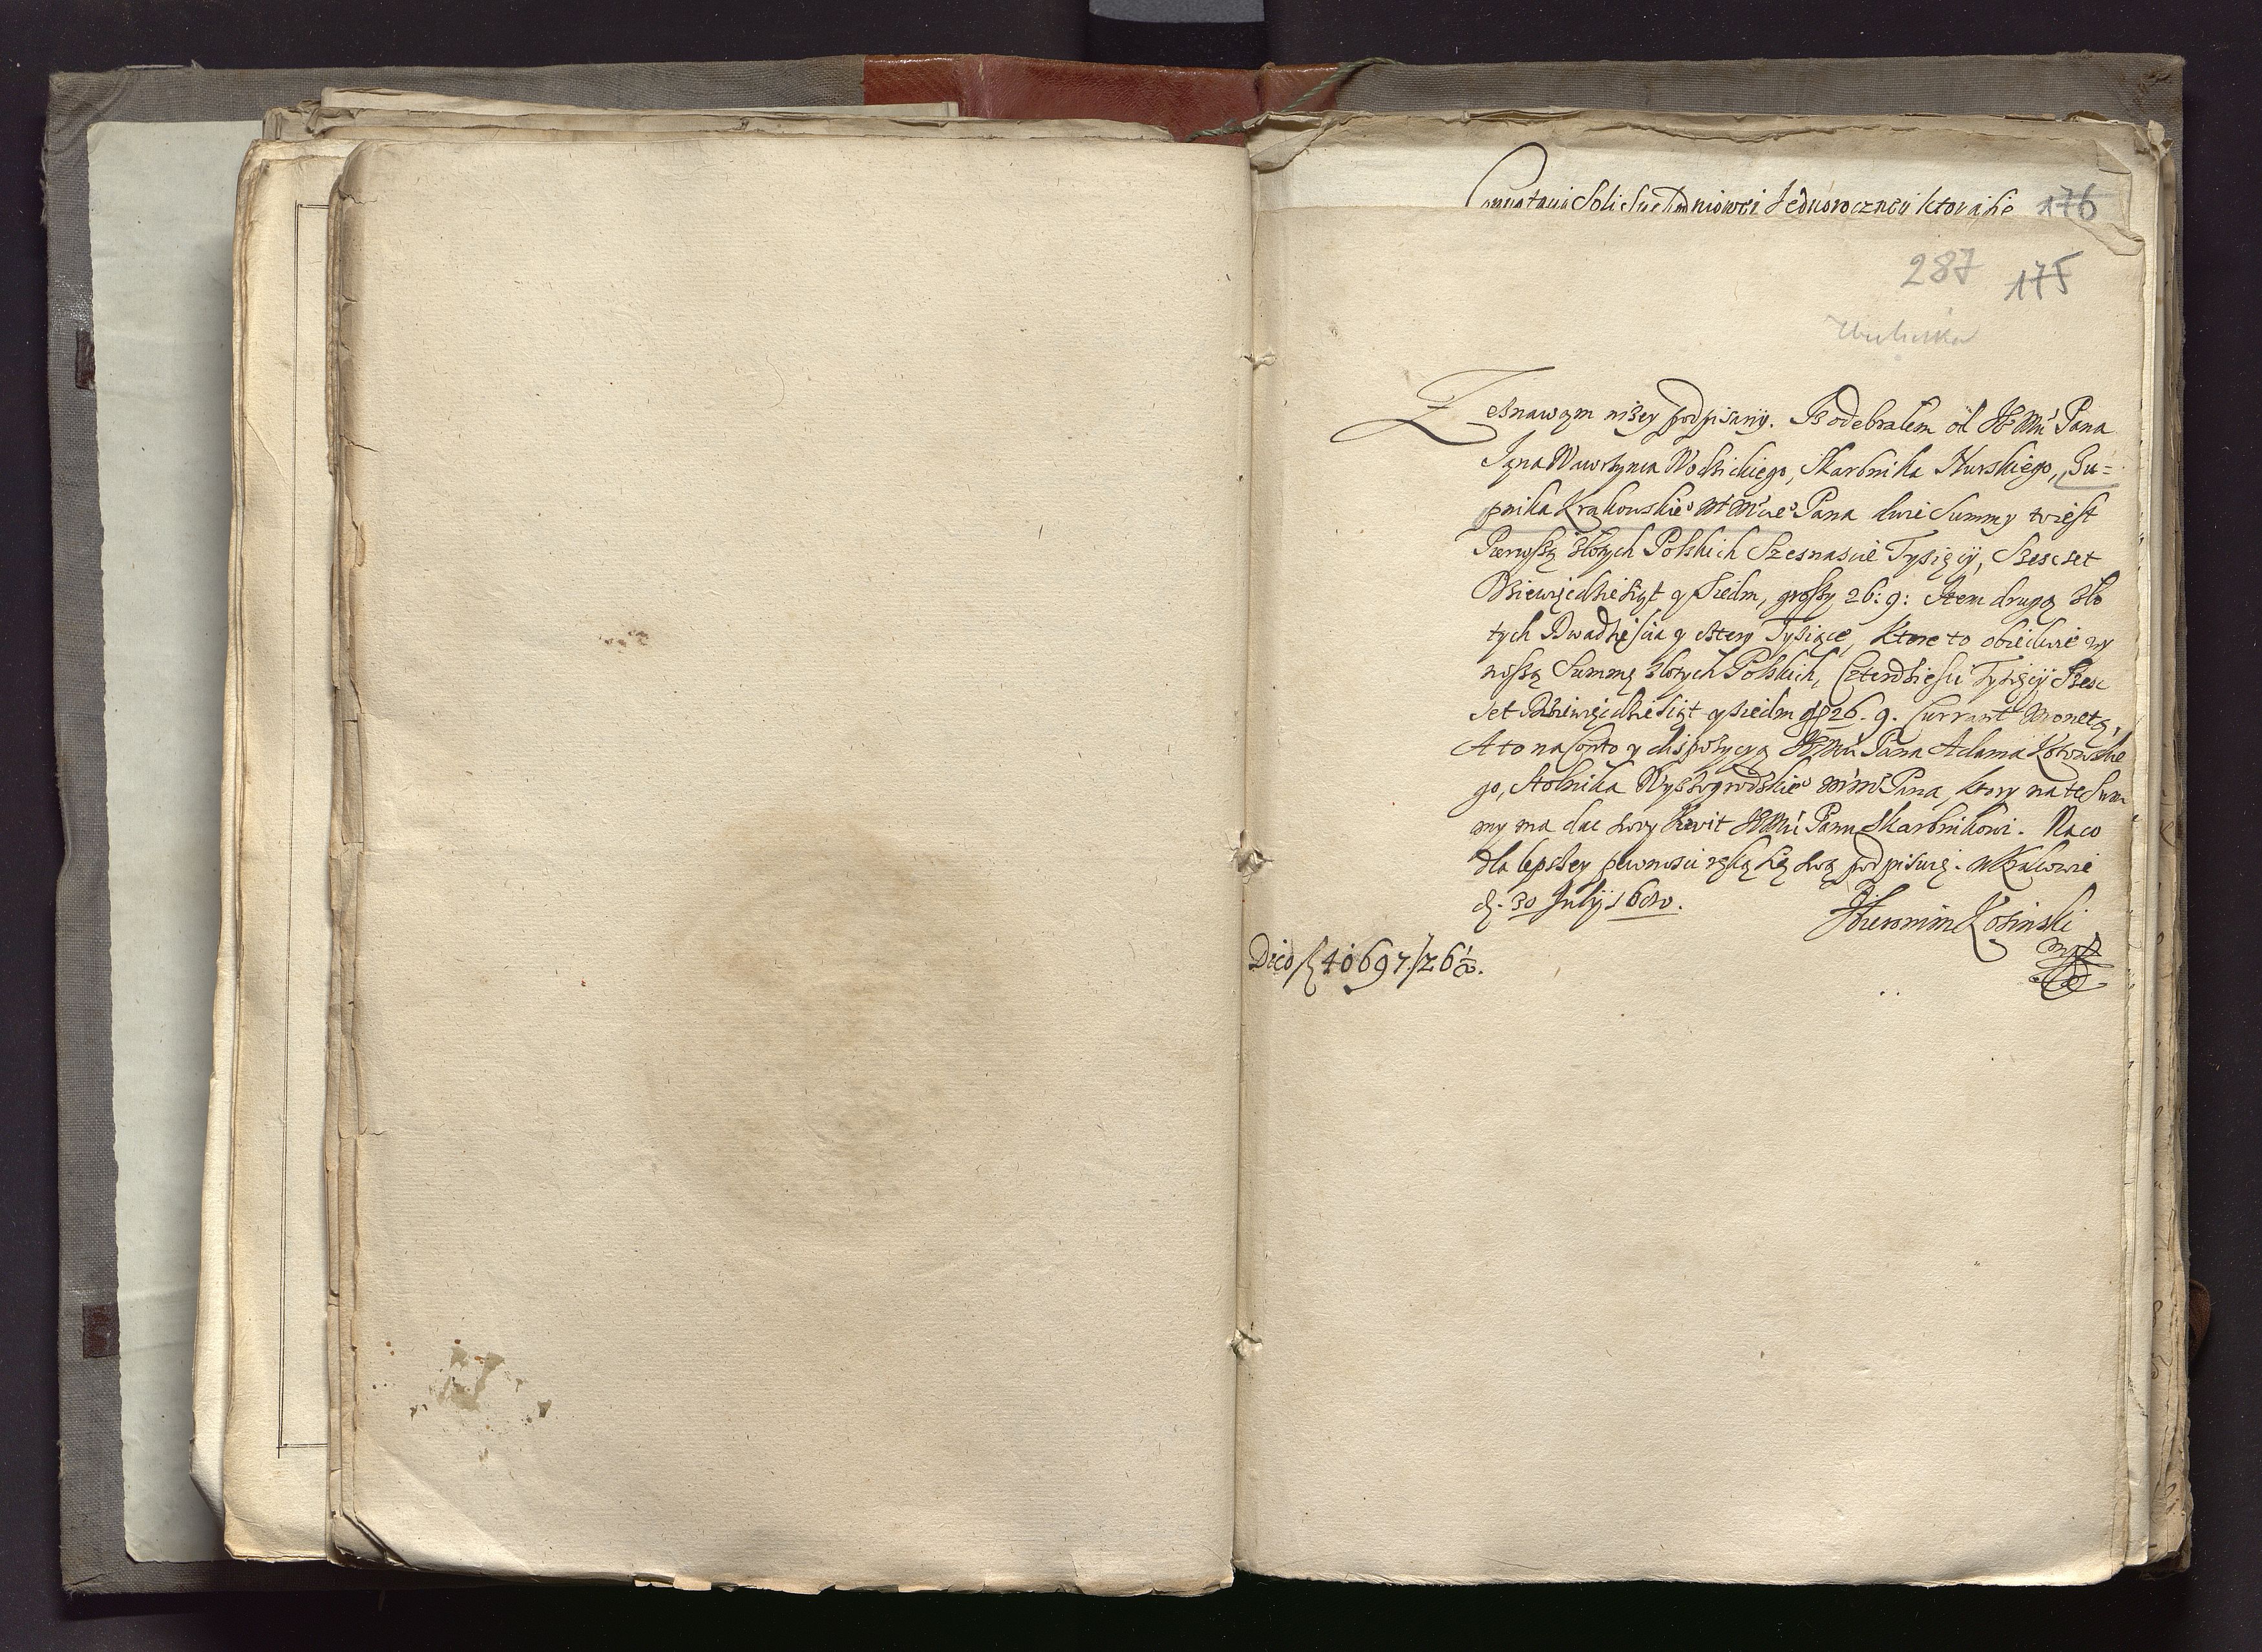 Computacij Soli Suchedniowei Jednoroczneij ktora sie 176
287 175
Zeznawam nizey podpisany. Iz odebralem od JE Mci Pana
Jana Wawrzynca Wodzickiego, Skarbnika Nurskiego, Zu=
pnika Krakowskieo M Mcieo Pana dwie Summy to iest
Pierwszą Złotych Polskich Szesnascie Tysięcy, Szescset
Dziewięcdziesiąt y Siedm, groszy 26: 9: Item drugą Zło
tych Dwadziescia y cztery Tysiące, Ktore to obiedwie wy
noszą Summę Złotych Polskich, Czterdziesci Tysięcy Szesc
set Dziewięcdziesiąt y siedm gß 26. 9. Currant Monetą,
A to na Conto y dispozycyą JE Mci Pana Adama Kotowskie
go, Stolnika Wyszogrodzkieo mMPana, ktory na te Sum
my ma dac swoy Kwit JE Mci Panu Skarbnikowi. Na co
dla lepszey pewnosci ręką się swą podpisuię. w Krakowie
d. 30 Julij 1680.
Hieronim Kosinski
mpp
Dico f 40697./26 ½.